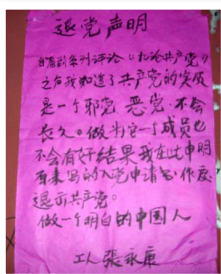 退党声明
自看到系列评论《九评共产党》
之后我知道了共产党的实质
是一个邪党 恶党 不会
长久。做为它一个成员也
不会有好结果我在此申明
原来写的入党申请书作废
退出共产党。
做一个明白的中国人
工人 張永康